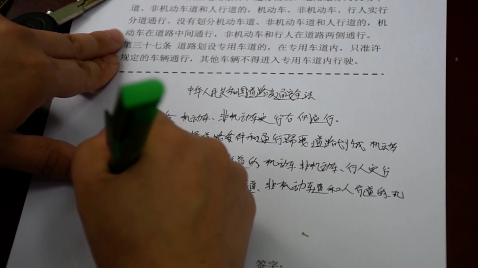 道、非机动车道和人行道的，机动车、非机动车、行人实行
分道通行。没有划分机动车道、非机动车道和人行道的，机
动车在道路中间通行，非机动车和行人在道路两侧通行。
第三十七条 道路划设专用车道的，在专用车道内，只准许
规定的车辆通行，其他车辆不得进入专用车道内行驶。
中华人民共和国道路交通安全法
机动车、非机动车实行右侧通行。
条件和通行需要，道路划分为机动车
的，机动车、非机动车、行人实行
道、非机动车道和人行道的，机
签字：